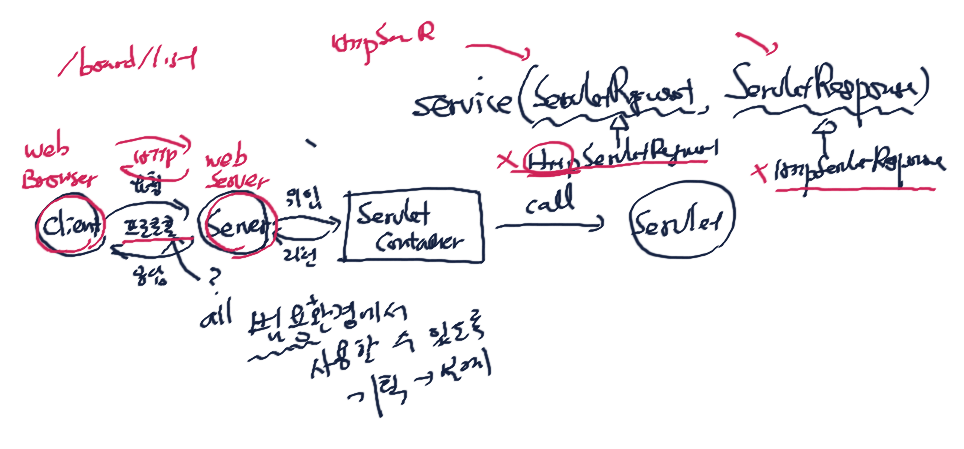 /board/list
service(ServletRequest, ServletResponse)
x HttpServletRequest
x HttpServletResponse
web
Browser
HTTP
요청
web
Server
Client
프로토콜
응답
Server
위임
리턴
Servlet
Container
call
Servlet
?
all
범용환경에서
사용할 수 있도록
기획 → 설계